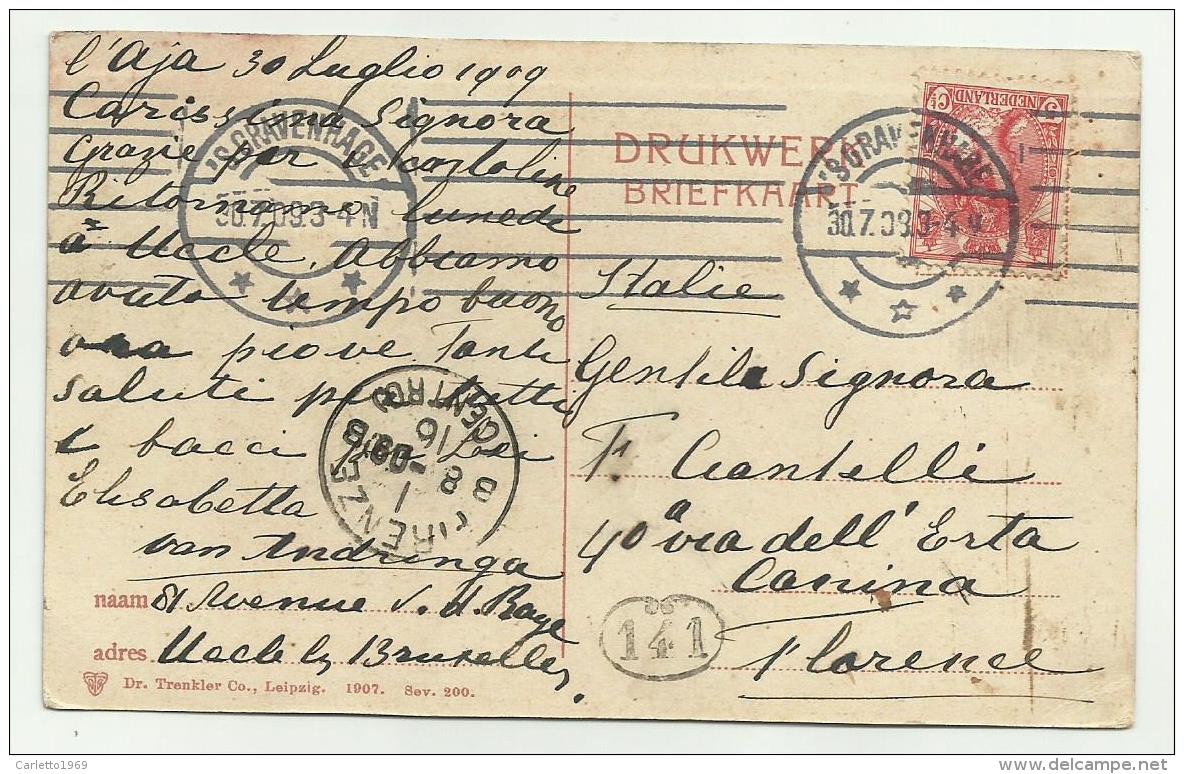 l'Aja 30 Luglio 1909
Carissima Signora
Grazie per i cartoline
Ritorniamo lunedi
a Uccle. Abbiamo
avuto tempo buono
ora piove. Tanti
saluti per tutti
e bacci per Lei
Elisabetta
van Andringa
naam 81 Avenue d.
adres Uccle Bruxelles
Dr. Trenkler Co., Leipzig. 1907. Sev. 200.
'S GRAVENHAGE
30.7.09.3-4N
FIRENZE
CENTRO
16
1
8
09
DRUKWERK
BRIEFKAART
'S GRAVENHAGE
30.7.09.3-4N
NEDERLAND
Italie
Gentile Signora
F. Ciantelli
40a via dell' Erta
Canina
Florence
141
Carletto1969
www.delcampe.net